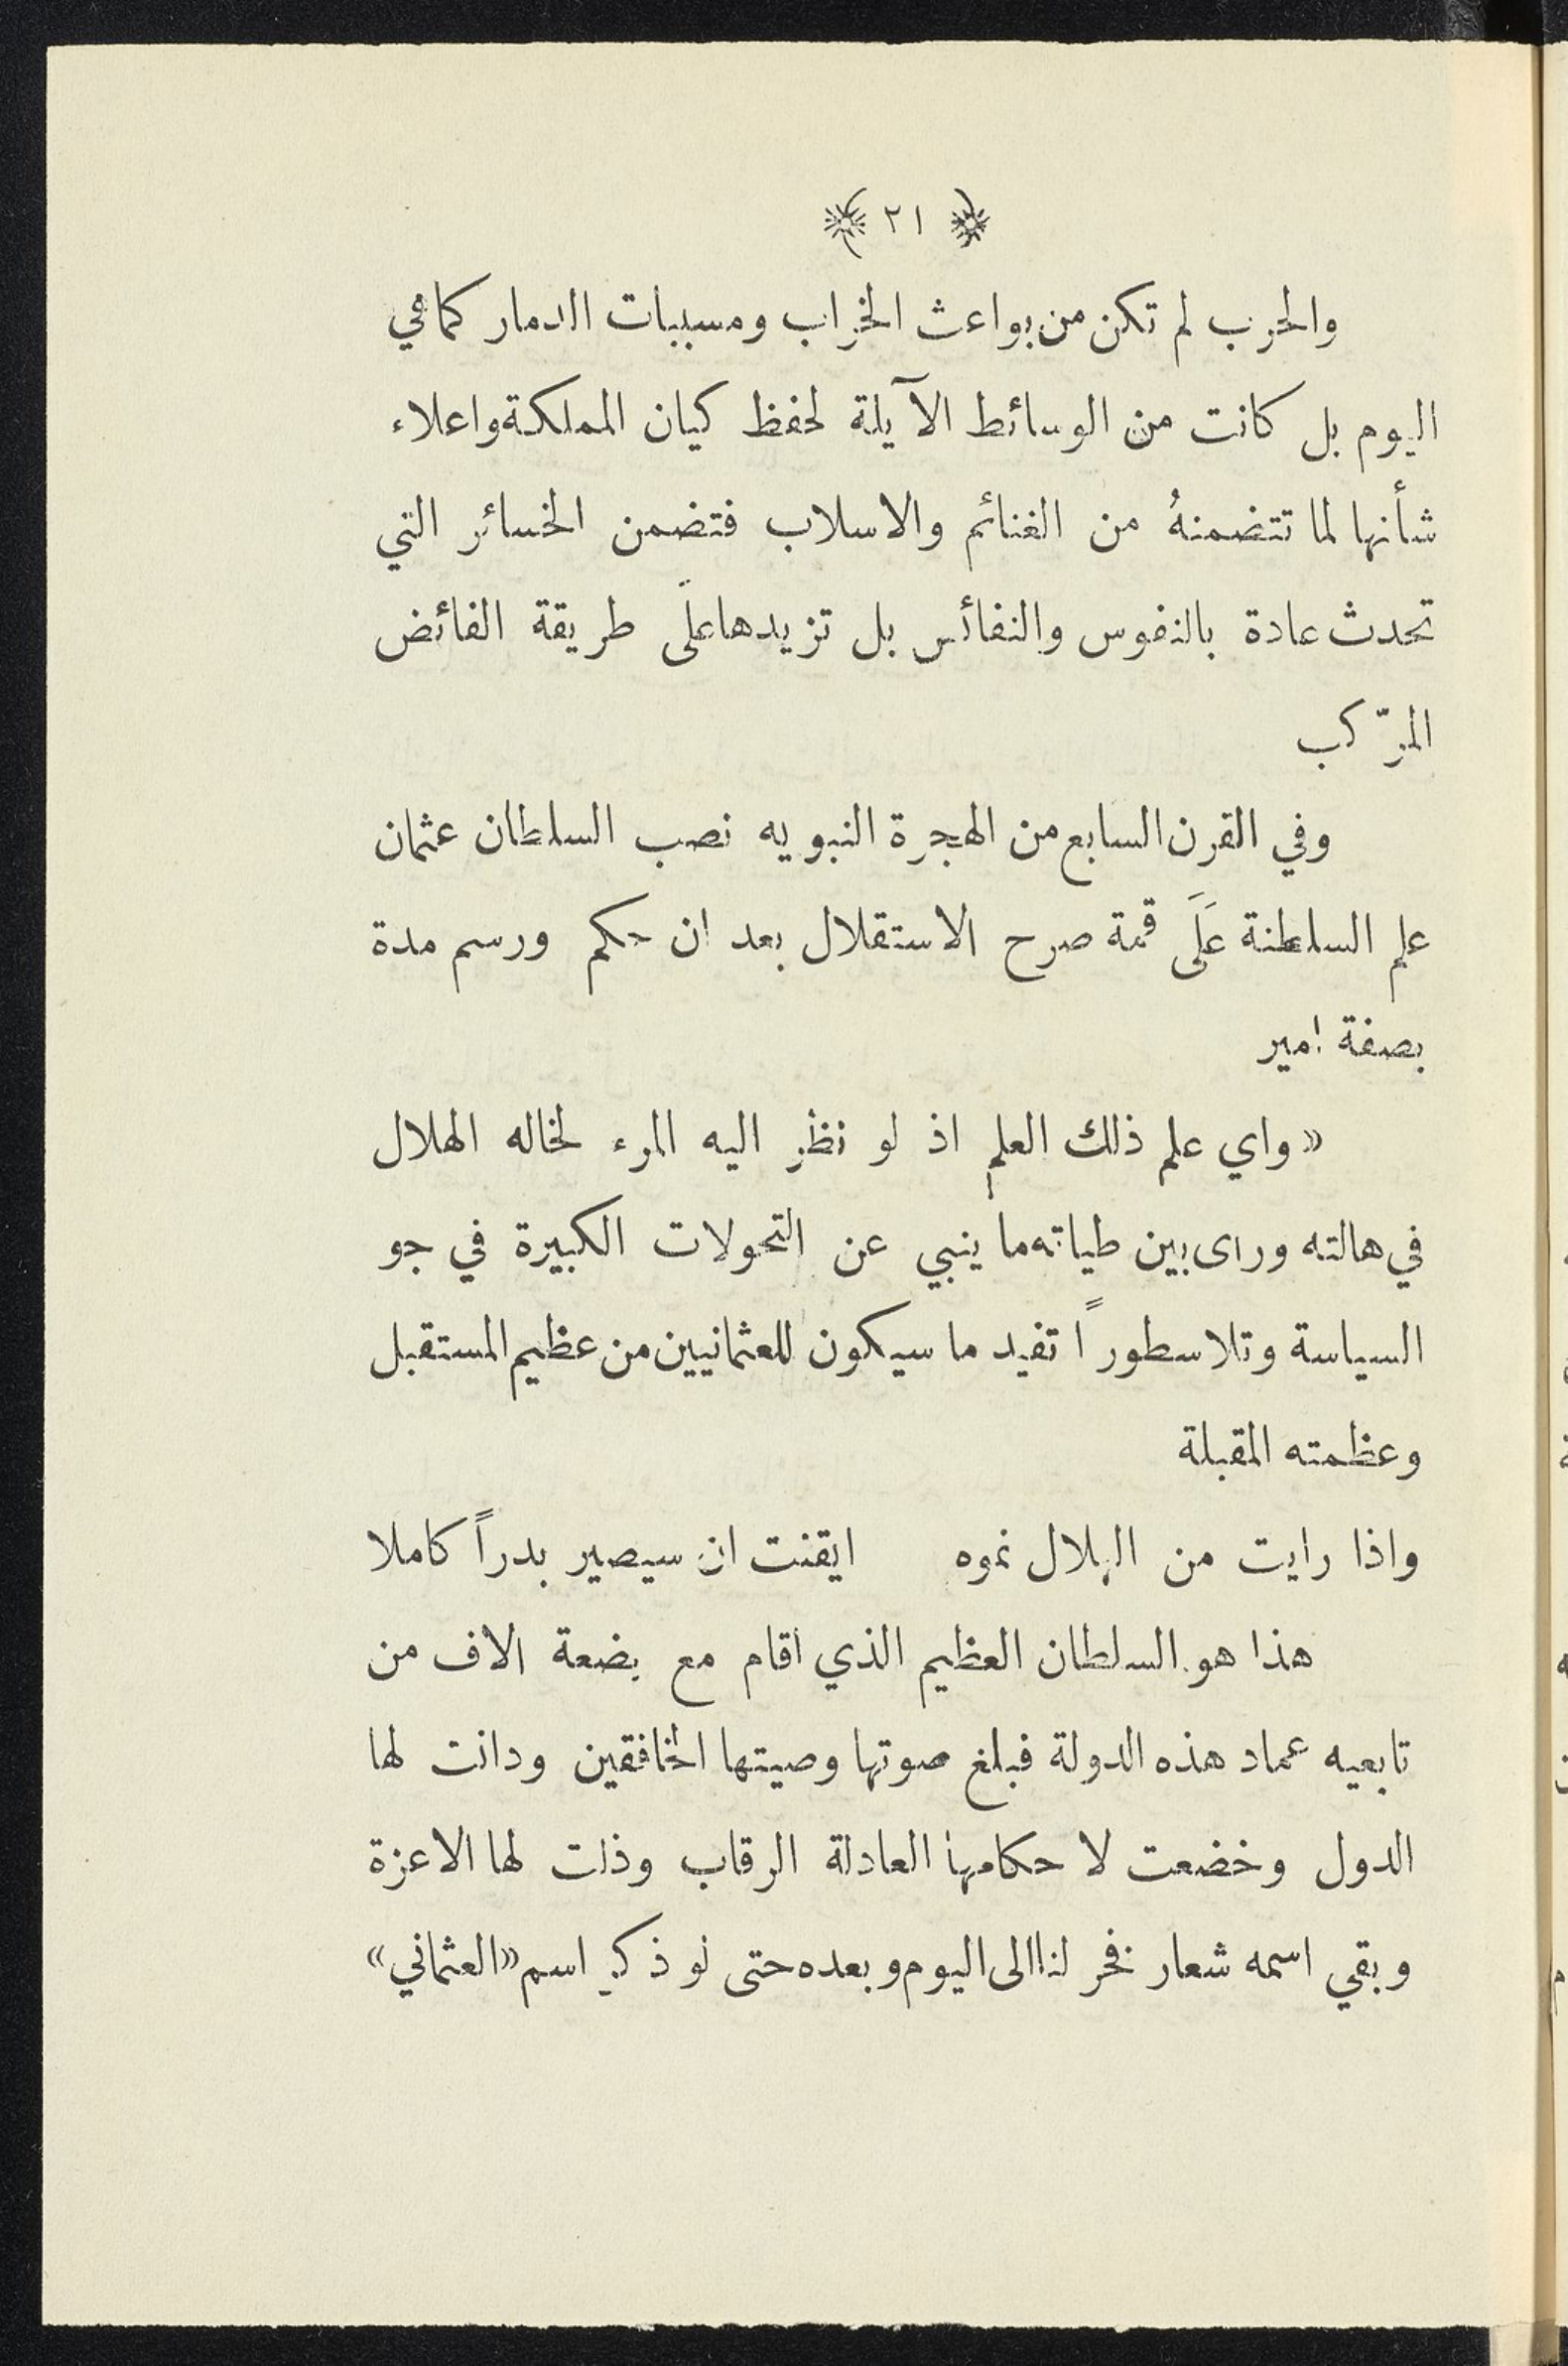 ﴿ ٢١ ﴾
والحرب لم تكن من بواعث الخراب ومسببات الدمار كما هي
اليوم بل كانت من الوسائط الآيلة لحفظ كيان المملكة واعلاء
شأنها لما تتضمنهُ من الغنائم والاسلاب فتضمن الخسائر التي
تحدث عادة بالنفوس والنفائس بل تزيدها علَى طريقة الفائض
المرّكب
وفي القرن السابع من الهجرة النبويه نصب السلطان عثمان
علم السلطنة عَلَى قمة صرح الاستقلال بعد ان حكم ورسم مدة
بصفة امير
«واي علم ذلك العلم اذ لو نظر اليه المرء لخاله الهلال
في هالته وراى بين طياته ما ينبي عن التحولات الكبيرة في جو
السياسة وتلا سطوراً تفيد ما سيكون للعثمانيين من عظيم المستقبل
وعظمته المقبلة
واذا رايت من الهلال نموه ايقنت ان سيصير بدراً كاملا
هذا هو السلطان العظيم الذي اقام مع بضعة الاف من
تابعيه عماد هذه الدولة فبلغ صوتها وصيتها الخافقين ودانت لها
الدول وخضعت لاحكامها العادلة الرقاب وذلت لها الاعزة
وبقي اسمه شعار فخر لنا الى اليوم وبعده حتى لو ذكر اسم «العثماني»